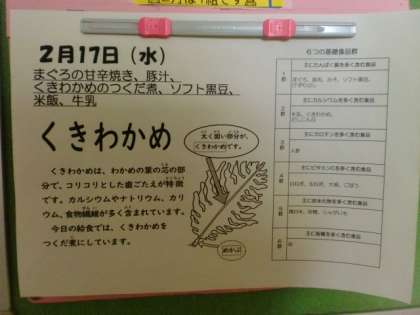 2月17日(水)
まぐろの甘辛焼き、豚汁、
くきわかめのつくだ煮、ソフト黒豆、
米飯、牛乳
くきわかめ
太く固い部分が、
くきわかめです。
くきわかめは、わかめの葉の芯の部
分で、コリコリとした歯ごたえが特徴
です。カルシウムやナトリウム、カリ
ウム、食物繊維が多く含まれています。
今日の給食では、くきわかめを
つくだ煮にしています。
めかぶ
6つの基礎食品群
主にたんぱく質を多く含む食品
1群
主にカルシウムを多く含む食品
2群
主にカロテンを多く含む食品
3群
主にビタミンCを多く含む食品
4群
主に炭水化物を多く含む食品
5群
主に脂質を多く含む食品
6群